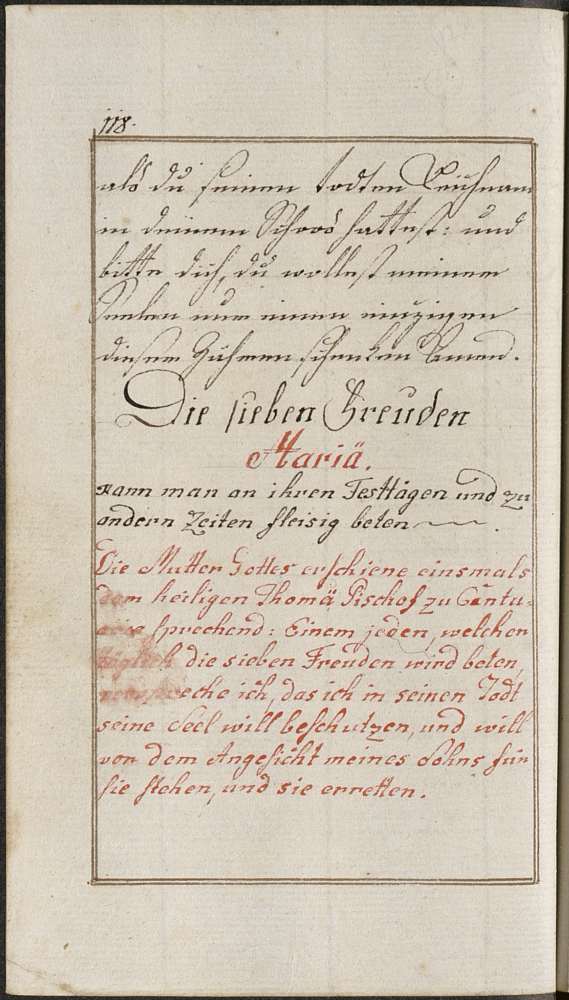 118.
als du seinen todten Leichnam
in deinem Schoos hattest: und
bitte dich, du wollest meinem
nur einen einzigen
dieser schenken Amen.
Die sieben Freuden
Mariä.
kann man an ihren Festtägen und zu
andern Zeiten fleisig beten
Die Mutter Gottes erschiene einsmals
dem heiligen Thomä Bischof zu Cantu-
sprechend: Einem jeden, welcher
täglich die sieben Freuden wird beten,
verspreche ich, das ich in seinen Todt
seine Seel will beschutzen, und will
von dem Angesicht meines Sohns für
sie stehen, und sie erretten.